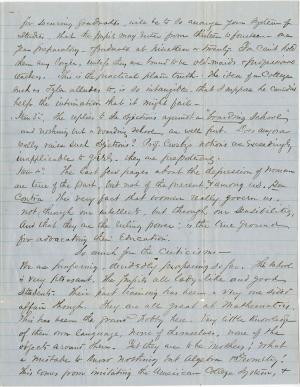 for securing graduates, will be to so arrange your system of
studies, that the pupil may enter from thirteen to fourteen - an
year preparatory - graduate at nineteen or twenty. You can't hold
them any longer, unless they are bound to be old-maids or professional
teachers. This is the practical plain truth. The idea of a College
such as Tyler alludes to, is so intangible, that I suppose he considers
helps the intimation that it might fail.
The replies to the objections against a "boarding school"
and nothing but a boarding school, are well put. Does anyone
really raise such objections? Prof. notions are exceedingly
inapplicable to girls, they are preposterous.
The last few pages about the depression of women
are true of the Past, but not of the present among us,
Contra The very fact that women really govern us -
not, through our intellects, but through our Sensibility,
and that they are the ruling power; is the true ground
for advocating their Education.
So much for the Criticisms -
We are prospering, decidedly prospering so far. The school
is very pleasant, the pupils all ladylike and good
students. Their past training has been a very one sided
affair though. They are all great at Mathematics.
This has been the grand hobby here. Very little knowledge
of their own language, none of themselves, none of the
objects around them. Yet they are to be mothers! What
a mistake to know nothing but Algebra & Geometry!
This comes from imitating the American College System, &